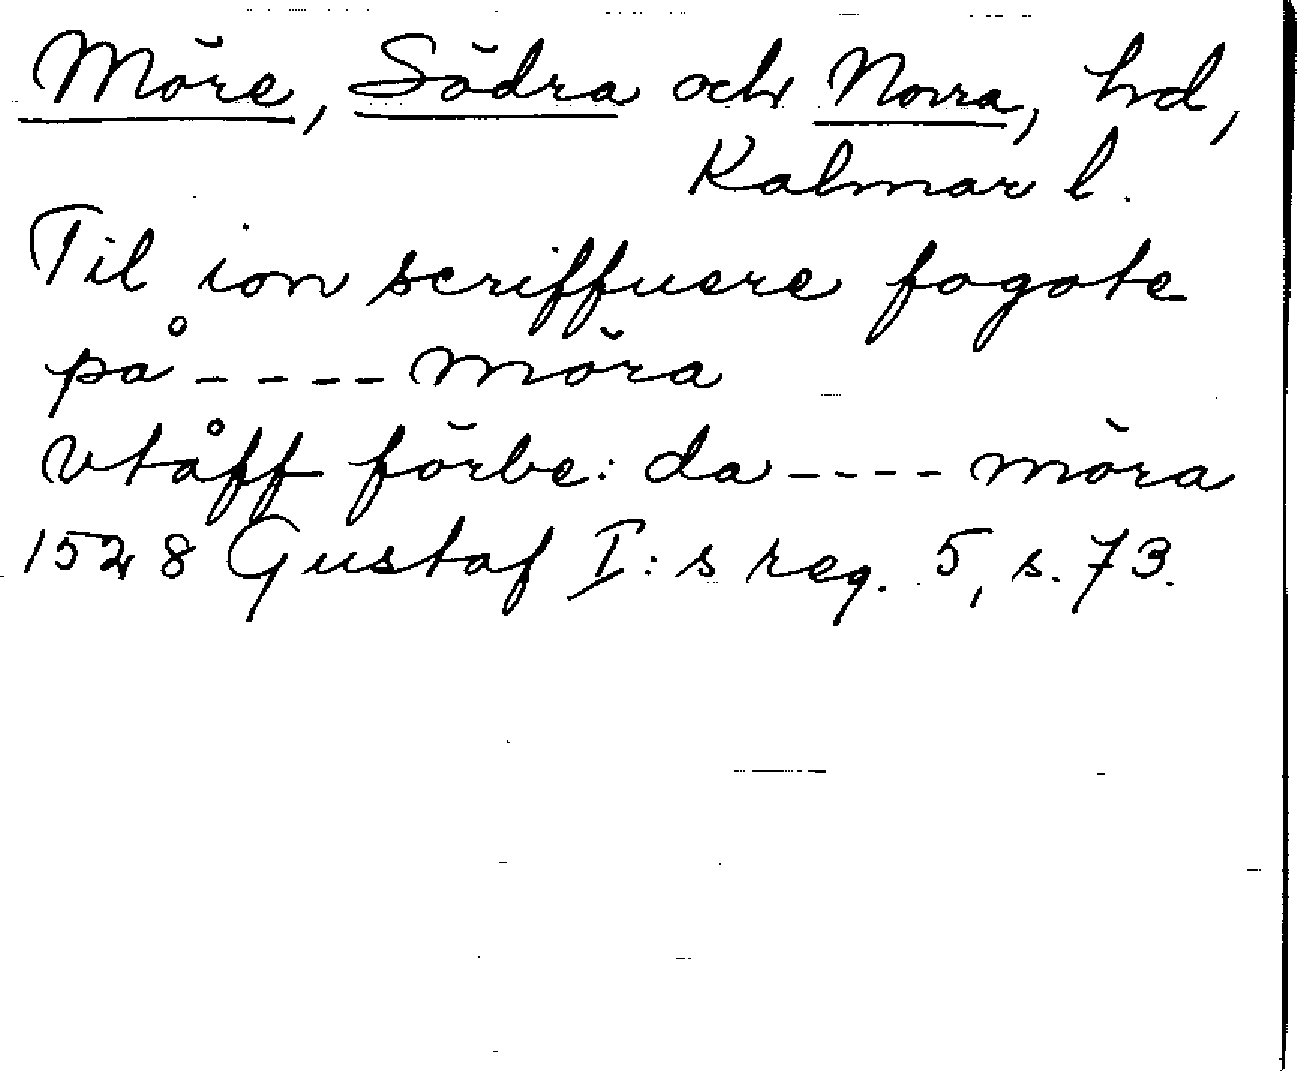 Möre, Södra och Norra, hd,
Kalmar l.
Til ion scriffuere fogote
på ---- möra
vtåff förbe: da ---- möra
1528 Gustaf I:s reg. 5, s. 73.